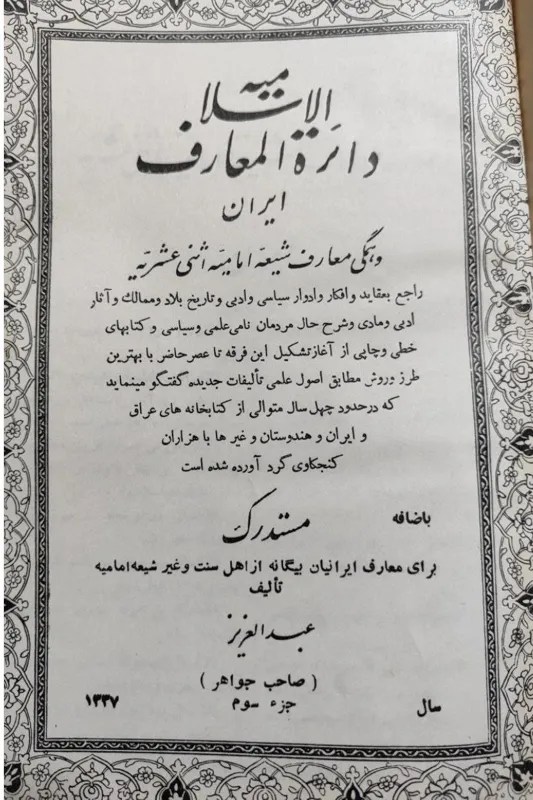 دائرة المعارف الاسلامیه
ایران
و همگی معارف شیعه امامیه اثنی عشریه
راجع بعقاید و افکار و ادوار سیاسی و ادبی و تاریخ بلاد و ممالک و آثار
ادبی و مادی و شرح حال مردمان نامی علمی و سیاسی و کتابهای
خطی و چاپی از آغاز تشکیل این فرقه تا عصر حاضر با بهترین
طرز و روش مطابق اصول علمی تألیفات جدیده گفتگو مینماید
که در حدود چهل سال متوالی از کتابخانه های عراق
و ایران و هندوستان و غیر ها با هزاران
کنجکاوی گرد آورده شده است
باضافه مستدرک
برای معارف ایرانیان بیگانه از اهل سنت و غیر شیعه امامیه
تألیف
عبدالعزیز
( صاحب جواهر )
سال جزء سوم ۱۳۳۷